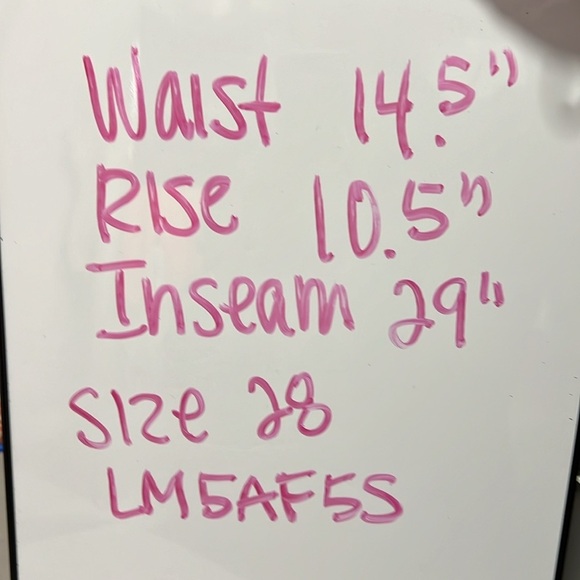 Waist 14.5"
Rise 10.5"
Inseam 29"
Size 28
LM5AF5S